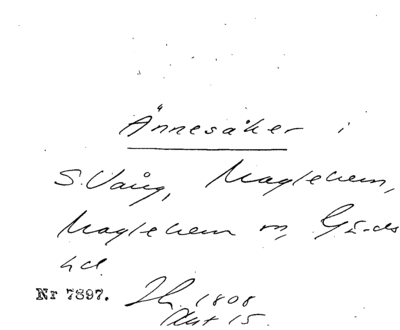 Ännesåker i
S. Vång, Maglehem,
Maglehem sn, Gärds
hd.
Nr 7897. Lh. 1808
Akt 15.